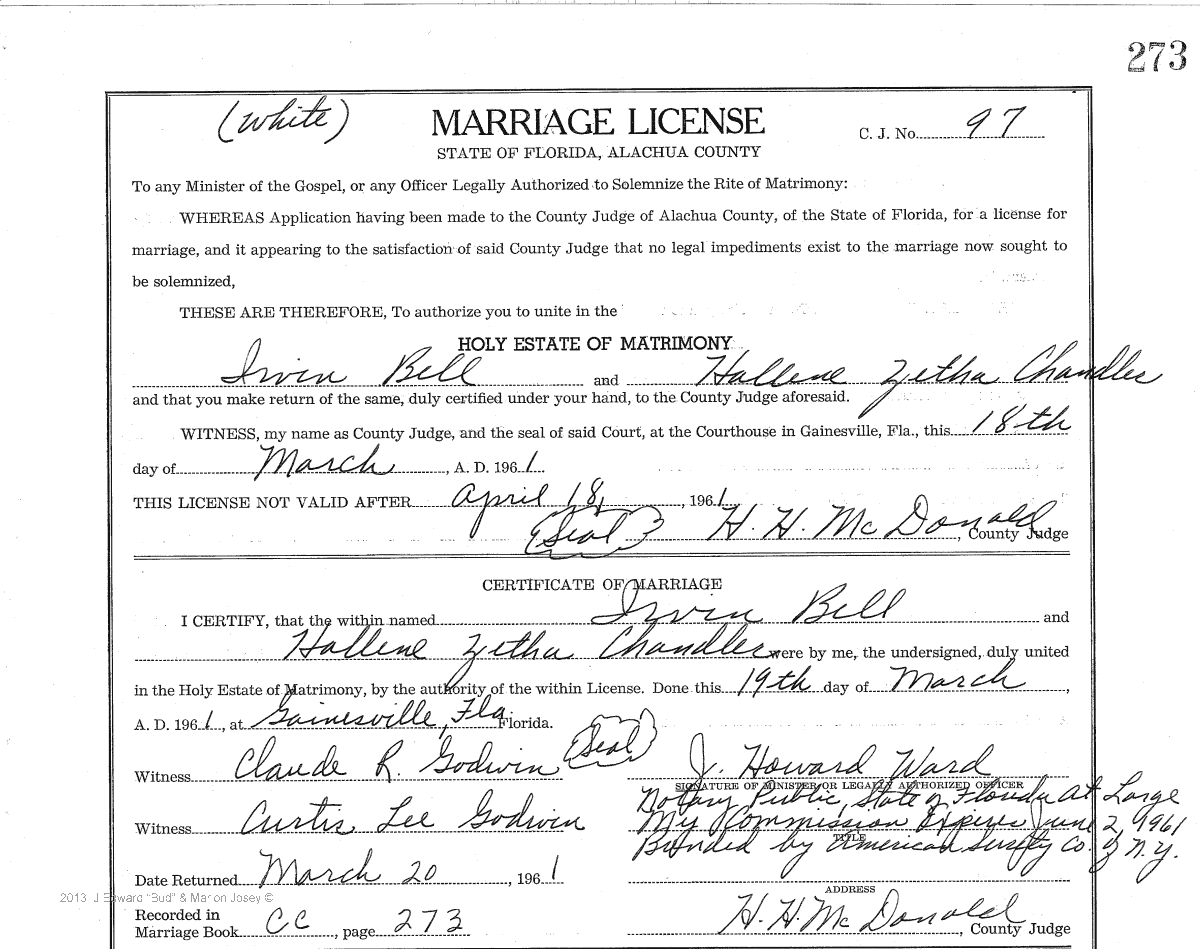 273
(White)
MARRIAGE LICENSE
C. J. No. 97
STATE OF FLORIDA, ALACHUA COUNTY
To any Minister of the Gospel, or any Officer Legally Authorized to Solemnize the Rite of Matrimony:
WHEREAS Application having been made to the County Judge of Alachua County, of the State of Florida, for a license for
marriage, and it appearing to the satisfaction of said County Judge that no legal impediments exist to the marriage now sought to
be solemnized,
THESE ARE THEREFORE, To authorize you to unite in the
HOLY ESTATE OF MATRIMONY
Irvin Bell and Hallene Zetha Chandler
and that you make return of the same, duly certified under your hand, to the County Judge aforesaid.
WITNESS, my name as County Judge, and the seal of said Court, at the Courthouse in Gainesville, Fla., this 18th
day of March, A. D. 1961
THIS LICENSE NOT VALID AFTER April 18, 1961
(Seal) H. H. McDonald, County Judge
CERTIFICATE OF MARRIAGE
I CERTIFY, that the within named Irvin Bell and
Hallene Zetha Chandler were by me, the undersigned, duly united
in the Holy Estate of Matrimony, by the authority of the within License. Done this 19th day of March,
A. D. 1961, at Gainesville, Fla Florida.
Witness Claude R. Godwin (Seal) J. Howard Ward
SIGNATURE OF MINISTER OR LEGALLY AUTHORIZED OFFICER
Notary Public, State of Florida at Large
Witness Curtis Lee Godwin My Commission Expires June 2, 1961
TITLE
Bonded by American Surety Co. of N.Y.
Date Returned March 20, 1961
ADDRESS
2013 J Edward "Bud" & Marion Josey ©
Recorded in
Marriage Book CC, page 273 H. H. McDonald, County Judge